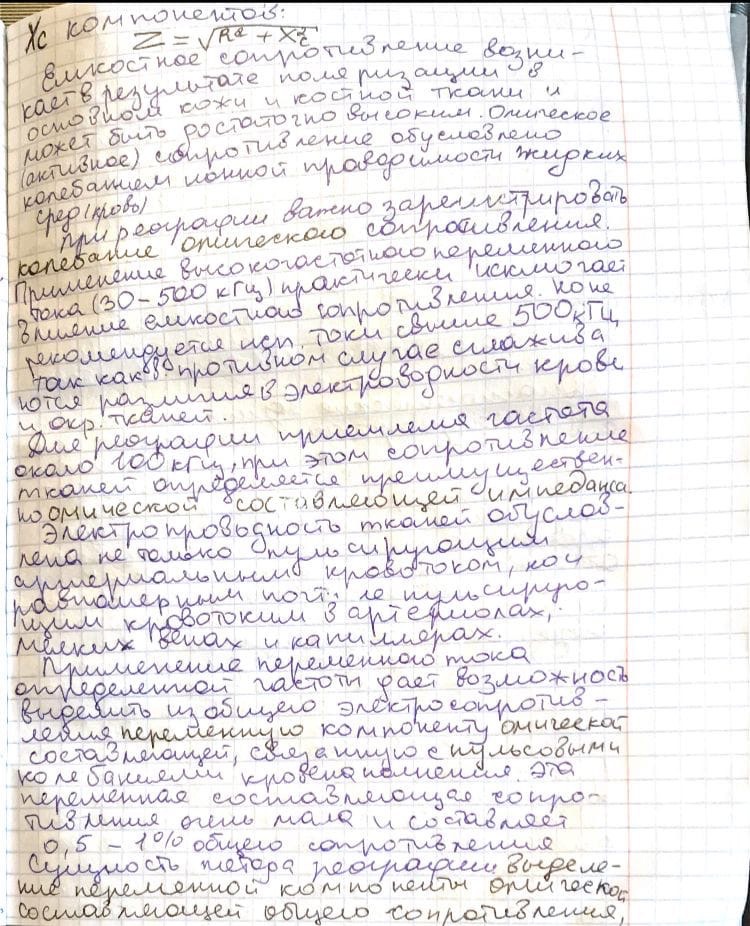 Xc компонентов:
Z = √R² + Xc²
Емкостное сопротивление возни-
кает в результате поляризации в
основном кожи и костной ткани и
может быть достаточно высоким. Омическое
(активное) сопротивление обусловлено
колебанием ионной проводимости жидких
сред (кровь)
При реографии важно зарегистрировать
колебание омического сопротивления.
Применение высокочастотного переменного
тока (30-500 кГц) практически исключает
влияние емкостного сопротивления. Но не
рекомендуется исп. токи свыше 500 кГц
так как в противном случае сглажива
ются различия в электроводности крове
и окр. тканей.
Для реографии приемлема частота
около 100 кГц, при этом сопротивление
тканей определяется преимуществен-
но омической составляющей импеданса.
Электропроводность тканей обуслов-
лена не только пульсирующим
артериальным кровотоком, но и
равномерным почти не пульсирую-
щим кровотоким в артериолах,
мелких венах и капиллярах.
Применение переменного тока
определенной частоты дает возможность
выделить из общего электросопротив-
ления переменную компоненту омической
составляющей, связанную с пульсовыми
колебаниями кровенаполнения. Эта
переменная составляющая сопро-
тивления очень мала и составляет
0,5 - 1% общего сопротивления
Сущность метода реографии выделе-
ние переменной компоненты омической
составляющей общего сопротивления,